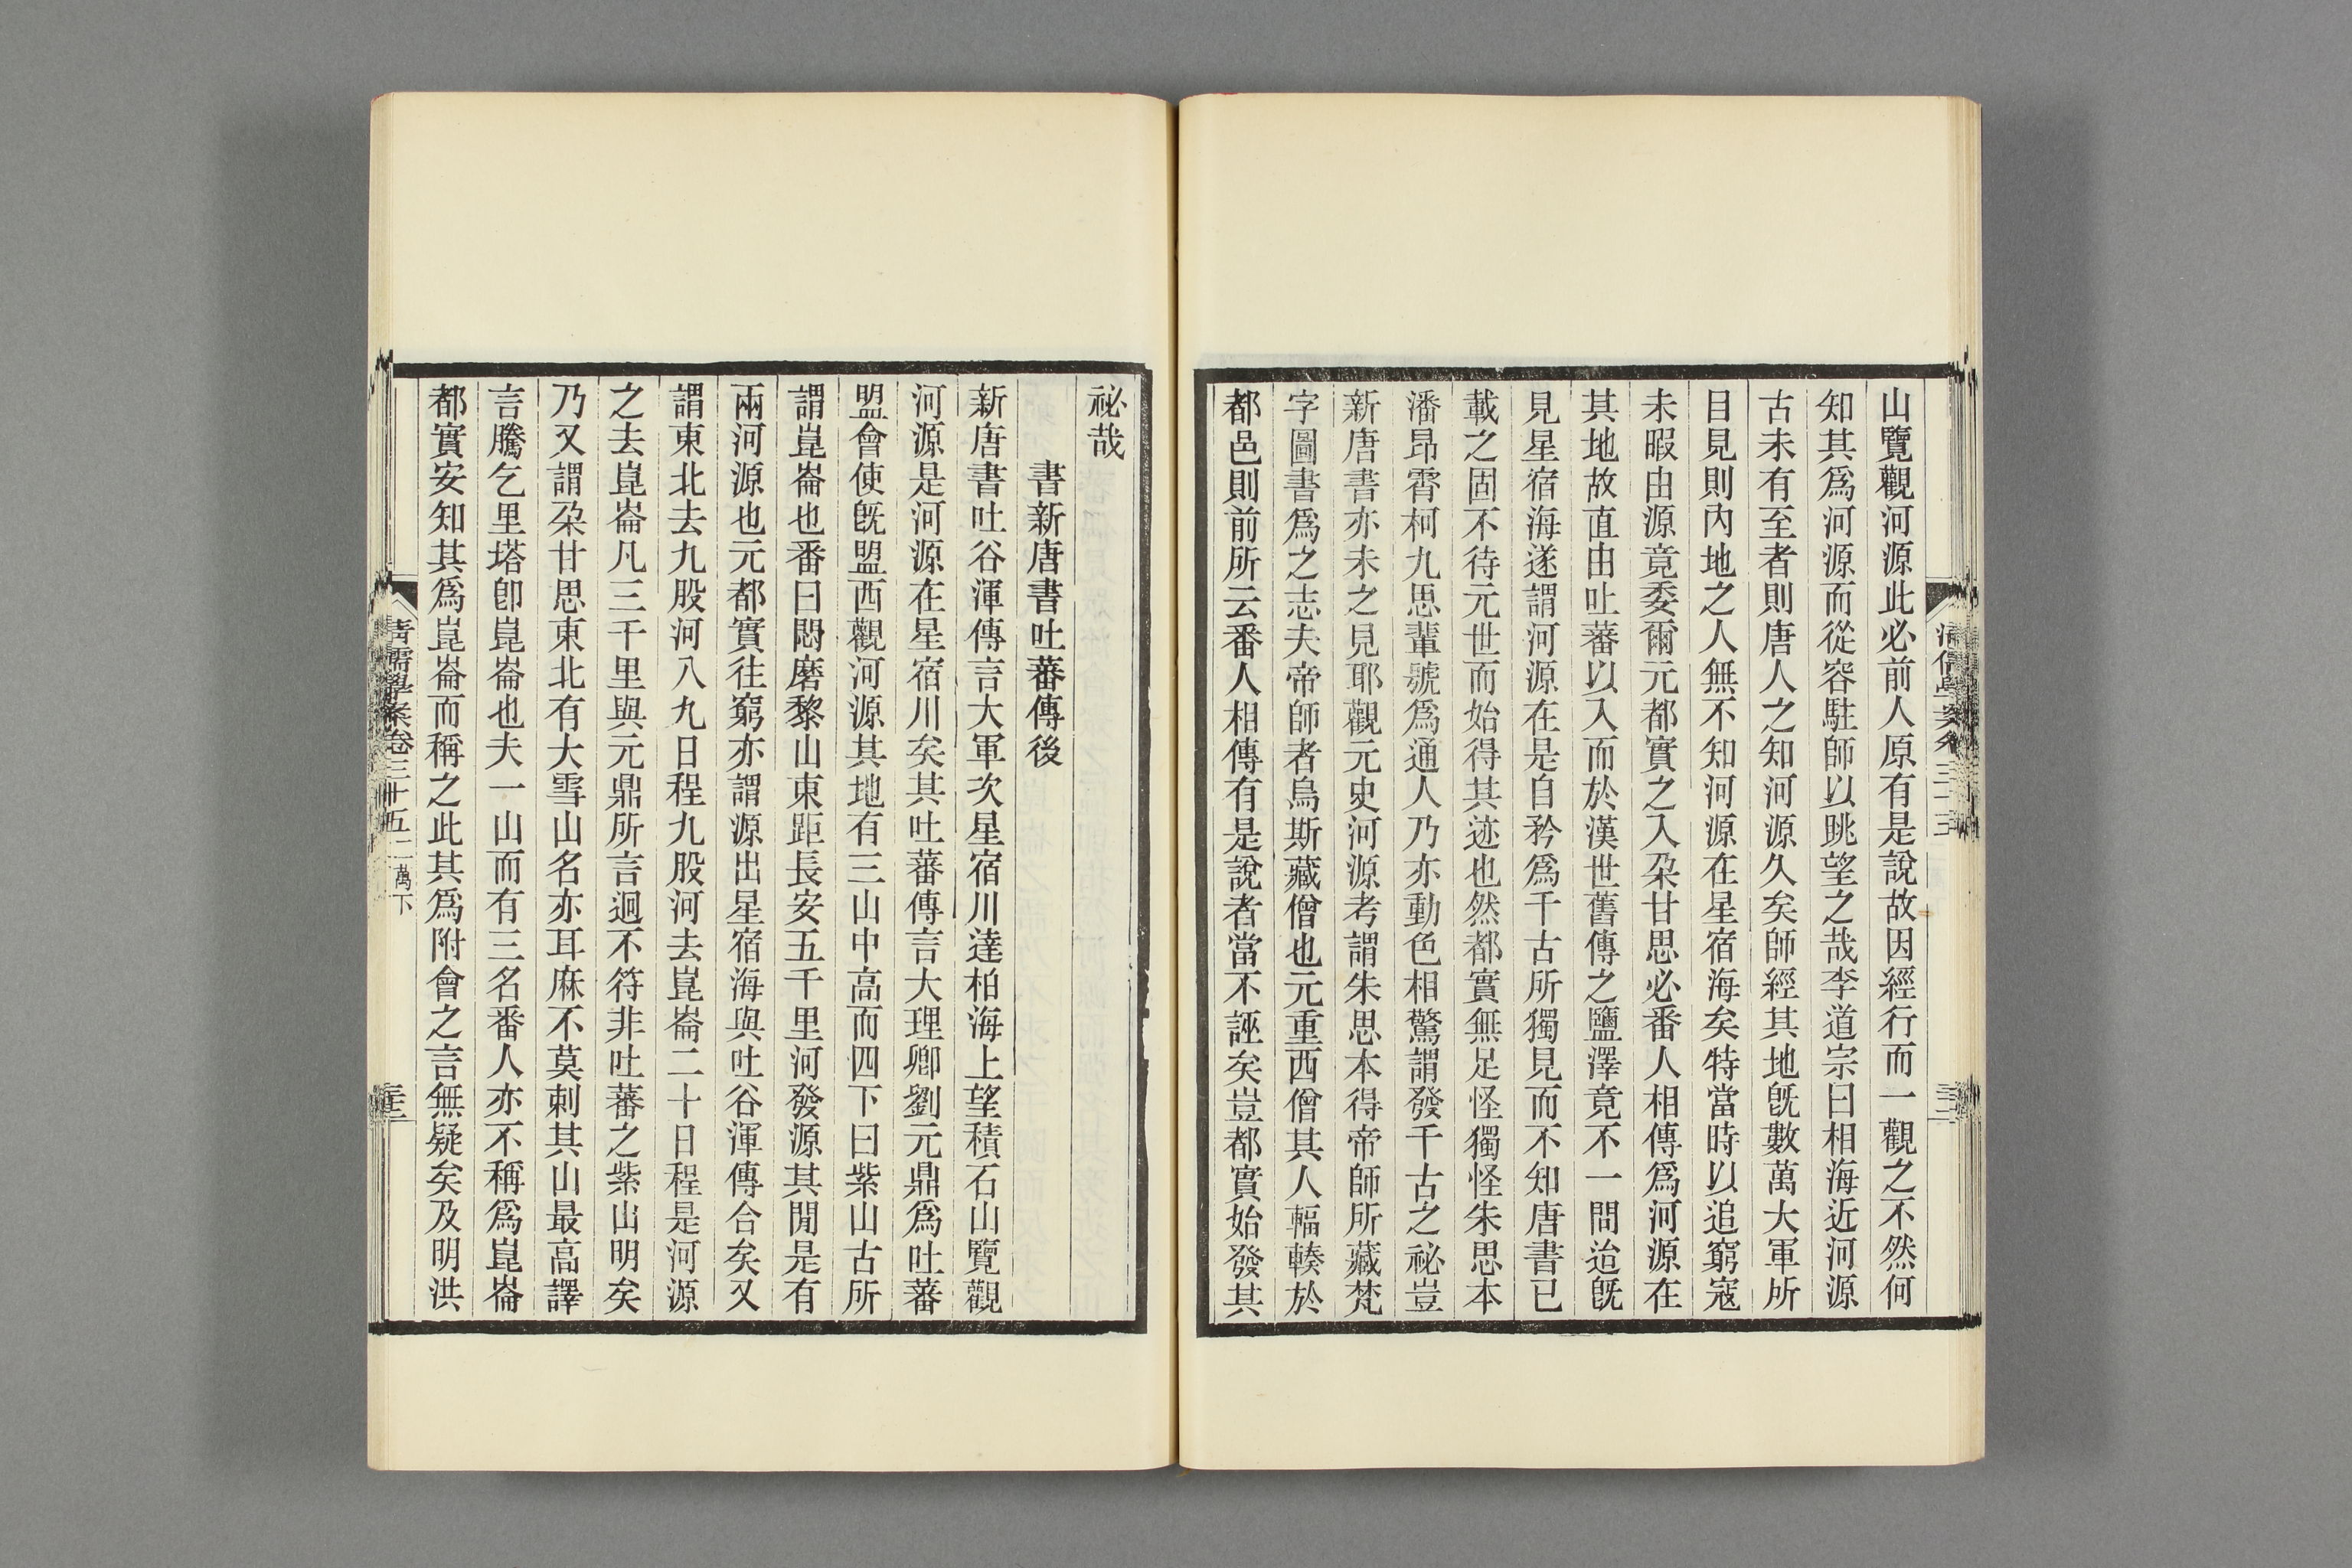 山覽觀河源此必前人原有是說故因經行而一觀之不然何
知其爲河源而從容駐師以眺望之哉李道宗曰相海近河源
古未有至者則唐人之知河源久矣師經其地旣數萬大軍所
目見則內地之人無不知河源在星宿海矣特當時以追窮寇
未暇由源竟委爾元都實之入朶甘思必番人相傳爲河源在
其地故直由吐蕃以入而於漢世舊傳之鹽澤竟不一問迨旣
見星宿海遂謂河源在是自矜爲千古所獨見而不知唐書已
載之固不待元世而始得其迹也然都實無足怪獨怪朱思本
潘昂霄柯九思輩號爲通人乃亦動色相驚謂發千古之祕豈
新唐書亦未之見耶觀元史河源考謂朱思本得帝師所藏梵
字圖書爲之志夫帝師者烏斯藏僧也元重西僧其人輻輳於
都邑則前所云番人相傳有是說者當不誣矣豈都實始發其
祕哉
書新唐書吐蕃傳後
新唐書吐谷渾傳言大軍次星宿川達柏海上望積石山覽觀
河源是河源在星宿川矣其吐蕃傳言大理卿劉元鼎爲吐蕃
盟會使旣盟西觀河源其地有三山中高而四下曰紫山古所
謂崑崙也番曰悶磨黎山東距長安五千里河發源其閒是有
兩河源也元都實往窮亦謂源出星宿海與吐谷渾傳合矣又
謂東北去九股河八九日程九股河去崑崙二十日程是河源
之去崑崙凡三千里與元鼎所言迥不符非吐蕃之紫山明矣
乃又謂朶甘思東北有大雪山名亦耳麻不莫剌其山最高譯
言騰乞里塔卽崑崙也夫一山而有三名番人亦不稱爲崑崙
都實安知其爲崑崙而稱之此其爲附會之言無疑矣及明洪
清儒學案卷三十五二萬下